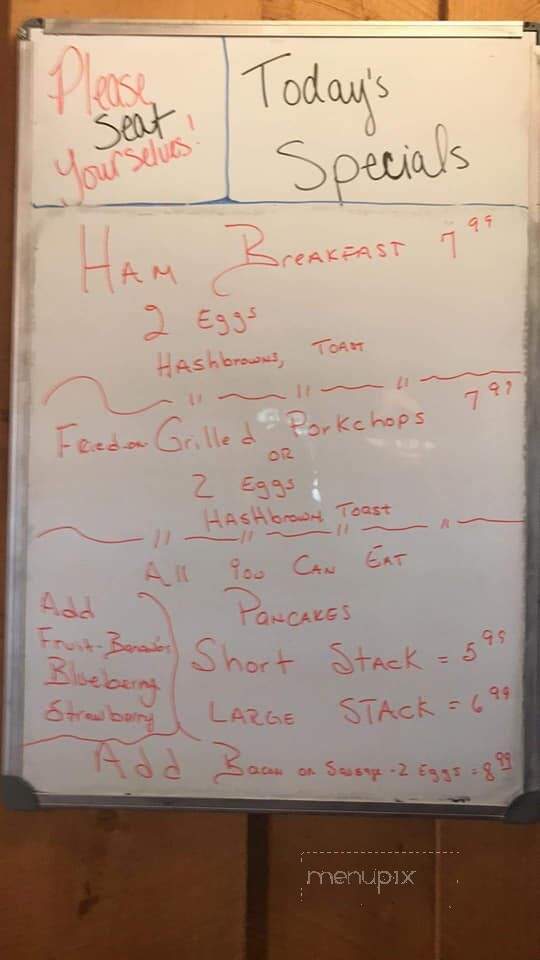 Please
Seat
Yourselves!
Today's
Specials
Ham Breakfast 7 99
2 Eggs
Hashbrowns, Toast
Fried or Grilled Porkchops 7 99
OR
2 Eggs
Hashbrowns Toast
All You Can Eat
Pancakes
Add
Fruit - Bananas
Blueberry
Strawberry
Short Stack = 5 95
Large Stack = 6 99
Add Bacon or Sausage - 2 Eggs = 8 99
menupix